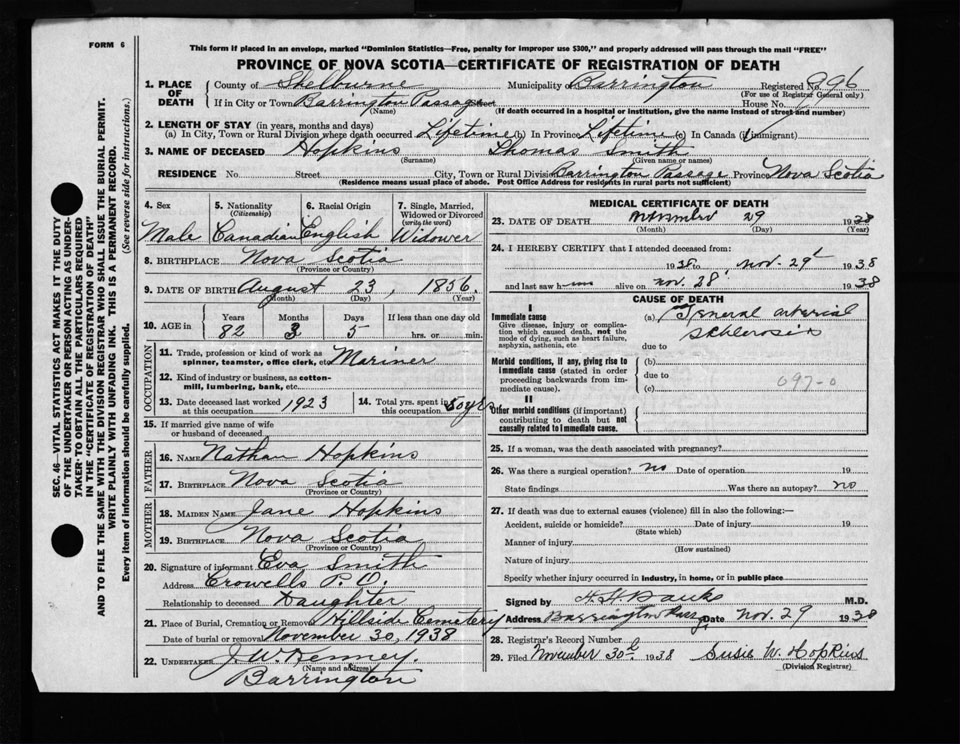 FORM 6
This form if placed in an envelope, marked "Dominion Statistics—Free, penalty for improper use $300," and properly addressed will pass through the mail "FREE"
PROVINCE OF NOVA SCOTIA—CERTIFICATE OF REGISTRATION OF DEATH
1. PLACE OF DEATH County of Shelburne Municipality of Barrington Registered No. 996
(For use of Registrar General only)
If in City or Town Barrington Passage House No.
(Name) (If death occurred in a hospital or institution, give the name instead of street and number)
2. LENGTH OF STAY (in years, months and days)
(a) In City, Town or Rural Division where death occurred Lifetime (b) In Province Lifetime (c) In Canada (if immigrant)
3. NAME OF DECEASED Hopkins Thomas Smith
(Surname) (Given name or names)
RESIDENCE No. Street City, Town or Rural Division Barrington Passage Province Nova Scotia
(Residence means usual place of abode. Post Office Address for residents in rural parts not sufficient)
4. Sex 5. Nationality (Citizenship) 6. Racial Origin 7. Single, Married, Widowed or Divorced (write the word)
Male Canadian English Widower
8. BIRTHPLACE Nova Scotia
(Province or Country)
9. DATE OF BIRTH August 23, 1856
(Month) (Day) (Year)
10. AGE in Years Months Days If less than one day old
82 3 5 hrs. or min.
OCCUPATION
11. Trade, profession or kind of work as spinner, teamster, office clerk, etc. Mariner
12. Kind of industry or business, as cotton-mill, lumbering, bank, etc.
13. Date deceased last worked at this occupation 1923 14. Total yrs. spent in this occupation 50 yrs
15. If married give name of wife or husband of deceased
FATHER
16. NAME Nathan Hopkins
17. BIRTHPLACE Nova Scotia
(Province or Country)
MOTHER
18. MAIDEN NAME Jane Hopkins
19. BIRTHPLACE Nova Scotia
(Province or Country)
20. Signature of informant Eva Smith
Address Crowells P. O.
Relationship to deceased Daughter
21. Place of Burial, Cremation or Removal Hillside Cemetery
Date of burial or removal November 30, 1938
22. UNDERTAKER J. W. Kenney.
(Name and address)
Barrington
MEDICAL CERTIFICATE OF DEATH
23. DATE OF DEATH November 29 1938
(Month) (Day) (Year)
24. I HEREBY CERTIFY that I attended deceased from:
1938 to Nov. 29 1938
and last saw him alive on Nov. 28 1938
CAUSE OF DEATH
I
Immediate cause
Give disease, injury or complication which caused death, not the mode of dying, such as heart failure, asphyxia, asthenia, etc
(a) General arterial
sclerosis
due to
Morbid conditions, if any, giving rise to immediate cause (stated in order proceeding backwards from immediate cause).
(b)
due to
(c)
097-0
II
Other morbid conditions (if important) contributing to death but not causally related to immediate cause.
25. If a woman, was the death associated with pregnancy?
26. Was there a surgical operation? no Date of operation 19
State findings Was there an autopsy? no
27. If death was due to external causes (violence) fill in also the following:—
Accident, suicide or homicide? Date of injury 19
(State which)
Manner of injury
(How sustained)
Nature of injury
Specify whether injury occurred in industry, in home, or in public place
Signed by H. H. Banks M.D.
Address Barrington Passage Date Nov. 29 1938
28. Registrar's Record Number
29. Filed November 30th 1938 Susie W. Hopkins
(Division Registrar)
SEC. 46—VITAL STATISTICS ACT MAKES IT THE DUTY
OF THE UNDERTAKER OR PERSON ACTING AS UNDER-
TAKER TO OBTAIN ALL THE PARTICULARS REQUIRED
IN THE "CERTIFICATE OF REGISTRATION OF DEATH"
AND TO FILE THE SAME WITH THE DIVISION REGISTRAR WHO SHALL ISSUE THE BURIAL PERMIT.
WRITE PLAINLY WITH UNFADING INK. THIS IS A PERMANENT RECORD.
Every item of information should be carefully supplied. (See reverse side for instructions.)